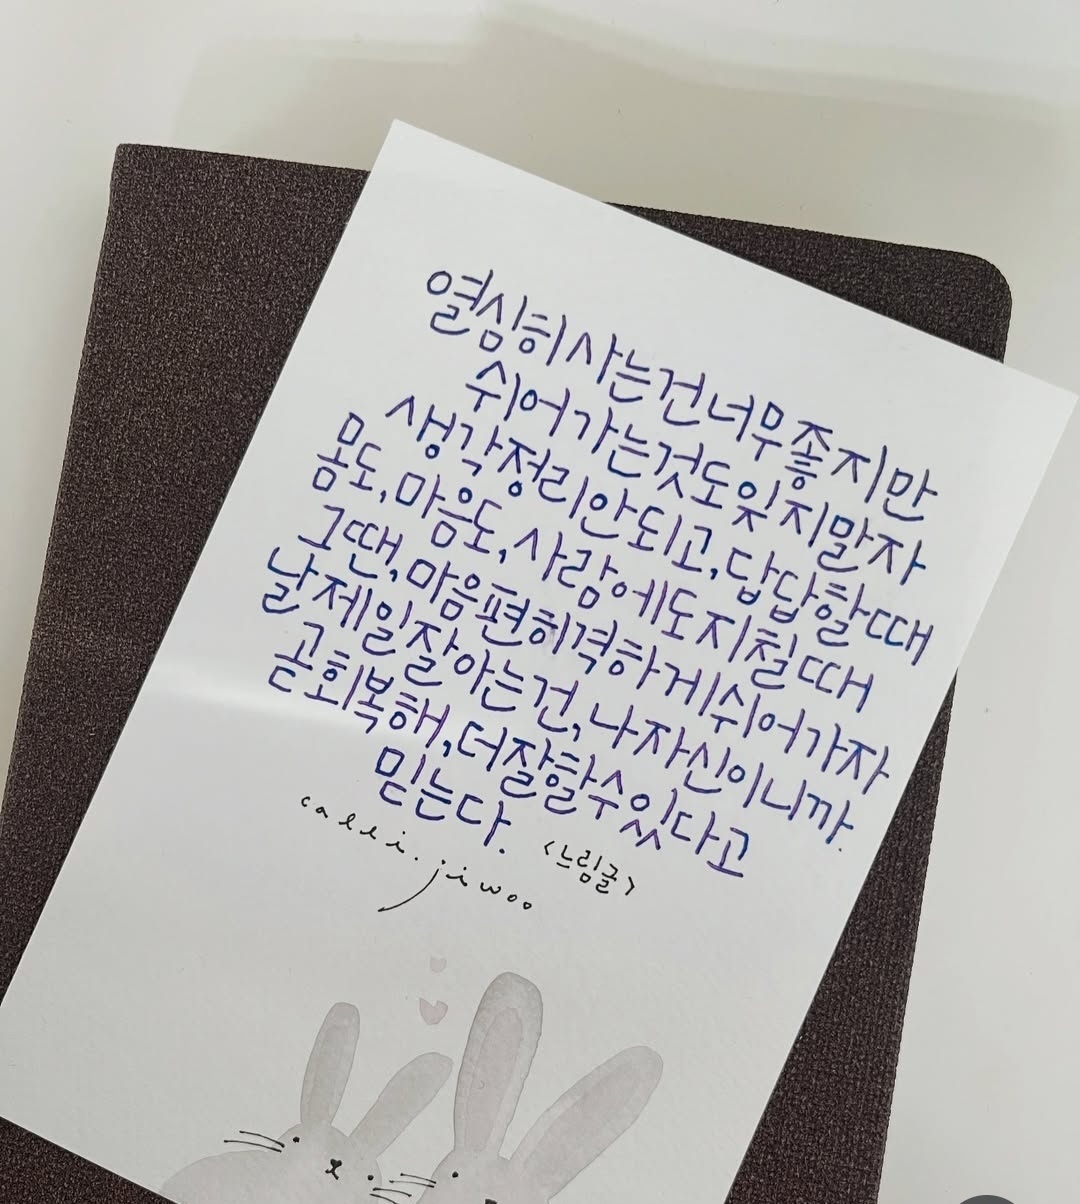 열심히 사는건 너무 좋지만
쉬어가는것도 잊지말자
생각정리 안되고, 답답할때
몸도, 마음도, 사람에도 지칠때
그땐, 마음편히 격하게 쉬어가자
날 제일 잘 아는건, 나 자신이니까.
곧 회복해, 더 잘할 수 있다고
믿는다.
<느림글>
calli.jiwoo